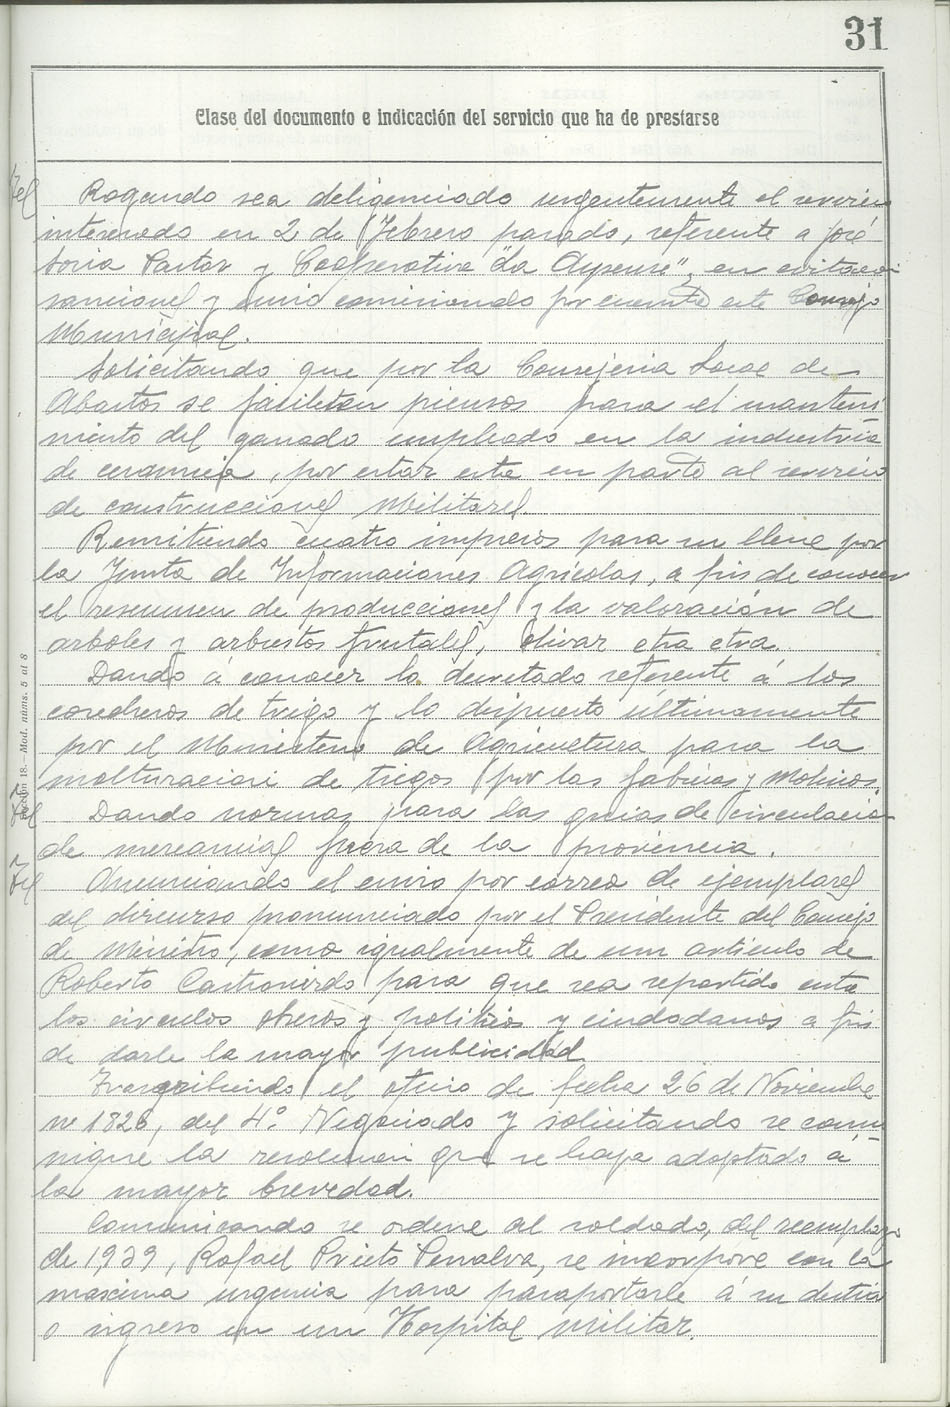 31
Clase del documento e indicación del servicio que ha de prestarse
Rogando sea deligenciado urgentemente el
interesado en 2 de Febrero pasado, referente a José
Soria Pastor y Cooperativa "La Aspense", en
y envio comisionado por cuenta este Consejo
Municipal.
Solicitando que por la Consejeria Local de
Abastos se faciliten piensos para el manteni
miento del ganado empleado en la industria
de ceramica, por estar esta en parte al servicio
de construcciones Militares
Remitiendo cuatro impresos para su llene por
la Junta de Informaciones Agricolas, a fin de conocer
el resumen de producciones y la valoración de
arboles y arbustos frutales, olivar etra etra.
Dando á conocer lo decretado referente á los
cosecheros de trigo y lo dispuesto últimamente
por el Ministerio de Agricultura para la
molturacion de trigos por las fabricas y Molinos.
Dando normas para las guias de circulacion
de mercancias fuera de la provincia.
Anunciando el envio por correo de ejemplares
del discurso pronunciado por el Presidente del Consejo
de Ministros, como igualmente de un articulo de
Roberto Castrovido para que sea repartido entre
los circulos obreros y politicos y ciudadanos a fin
de darle la mayor publicidad
Transcribiendo el oficio de fecha 26 de Noviembre
nº 1826, del 4º Negociado y solicitando se comu
nique la resolucion que se haya adoptado á
la mayor brevedad.
Comunicando se ordene al soldado, del reemplazo
de 1,939, Rafael Prieto Penalva, se incorpore con la
maxima urgencia para pasaportarle á su destino
o ingreso en un Hospital Militar.
18.—Mod. núms. 5 al 8